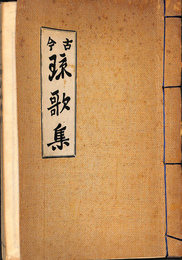 古今
琉歌集